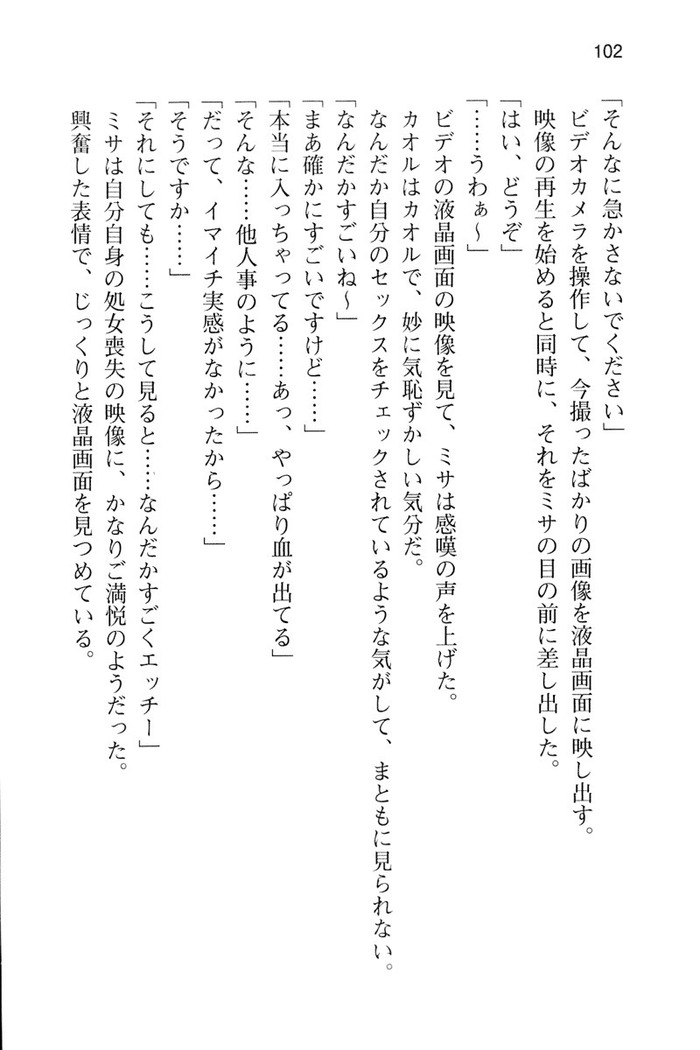 102
「そんなに急かさないでください」
ビデオカメラを操作して、今撮ったばかりの画像を液晶画面に映し出す。
映像の再生を始めると同時に、それをミサの目の前に差し出した。
「はい、どうぞ」
「……うわぁ～」
ビデオの液晶画面の映像を見て、ミサは感嘆の声を上げた。
カオルはカオルで、妙に気恥ずかしい気分だ。
なんだか自分のセックスをチェックされているような気がして、まともに見られない。
「なんだかすごいね～」
「まあ確かにすごいですけど……」
「本当に入っちゃってる……あっ、やっぱり血が出てる」
「そんな……他人事のように……」
「だって、イマイチ実感がなかったから……」
「そうですか……」
「それにしても……こうして見ると……なんだかすごくエッチー」
ミサは自分自身の処女喪失の映像に、かなりご満悦のようだった。
興奮した表情で、じっくりと液晶画面を見つめている。